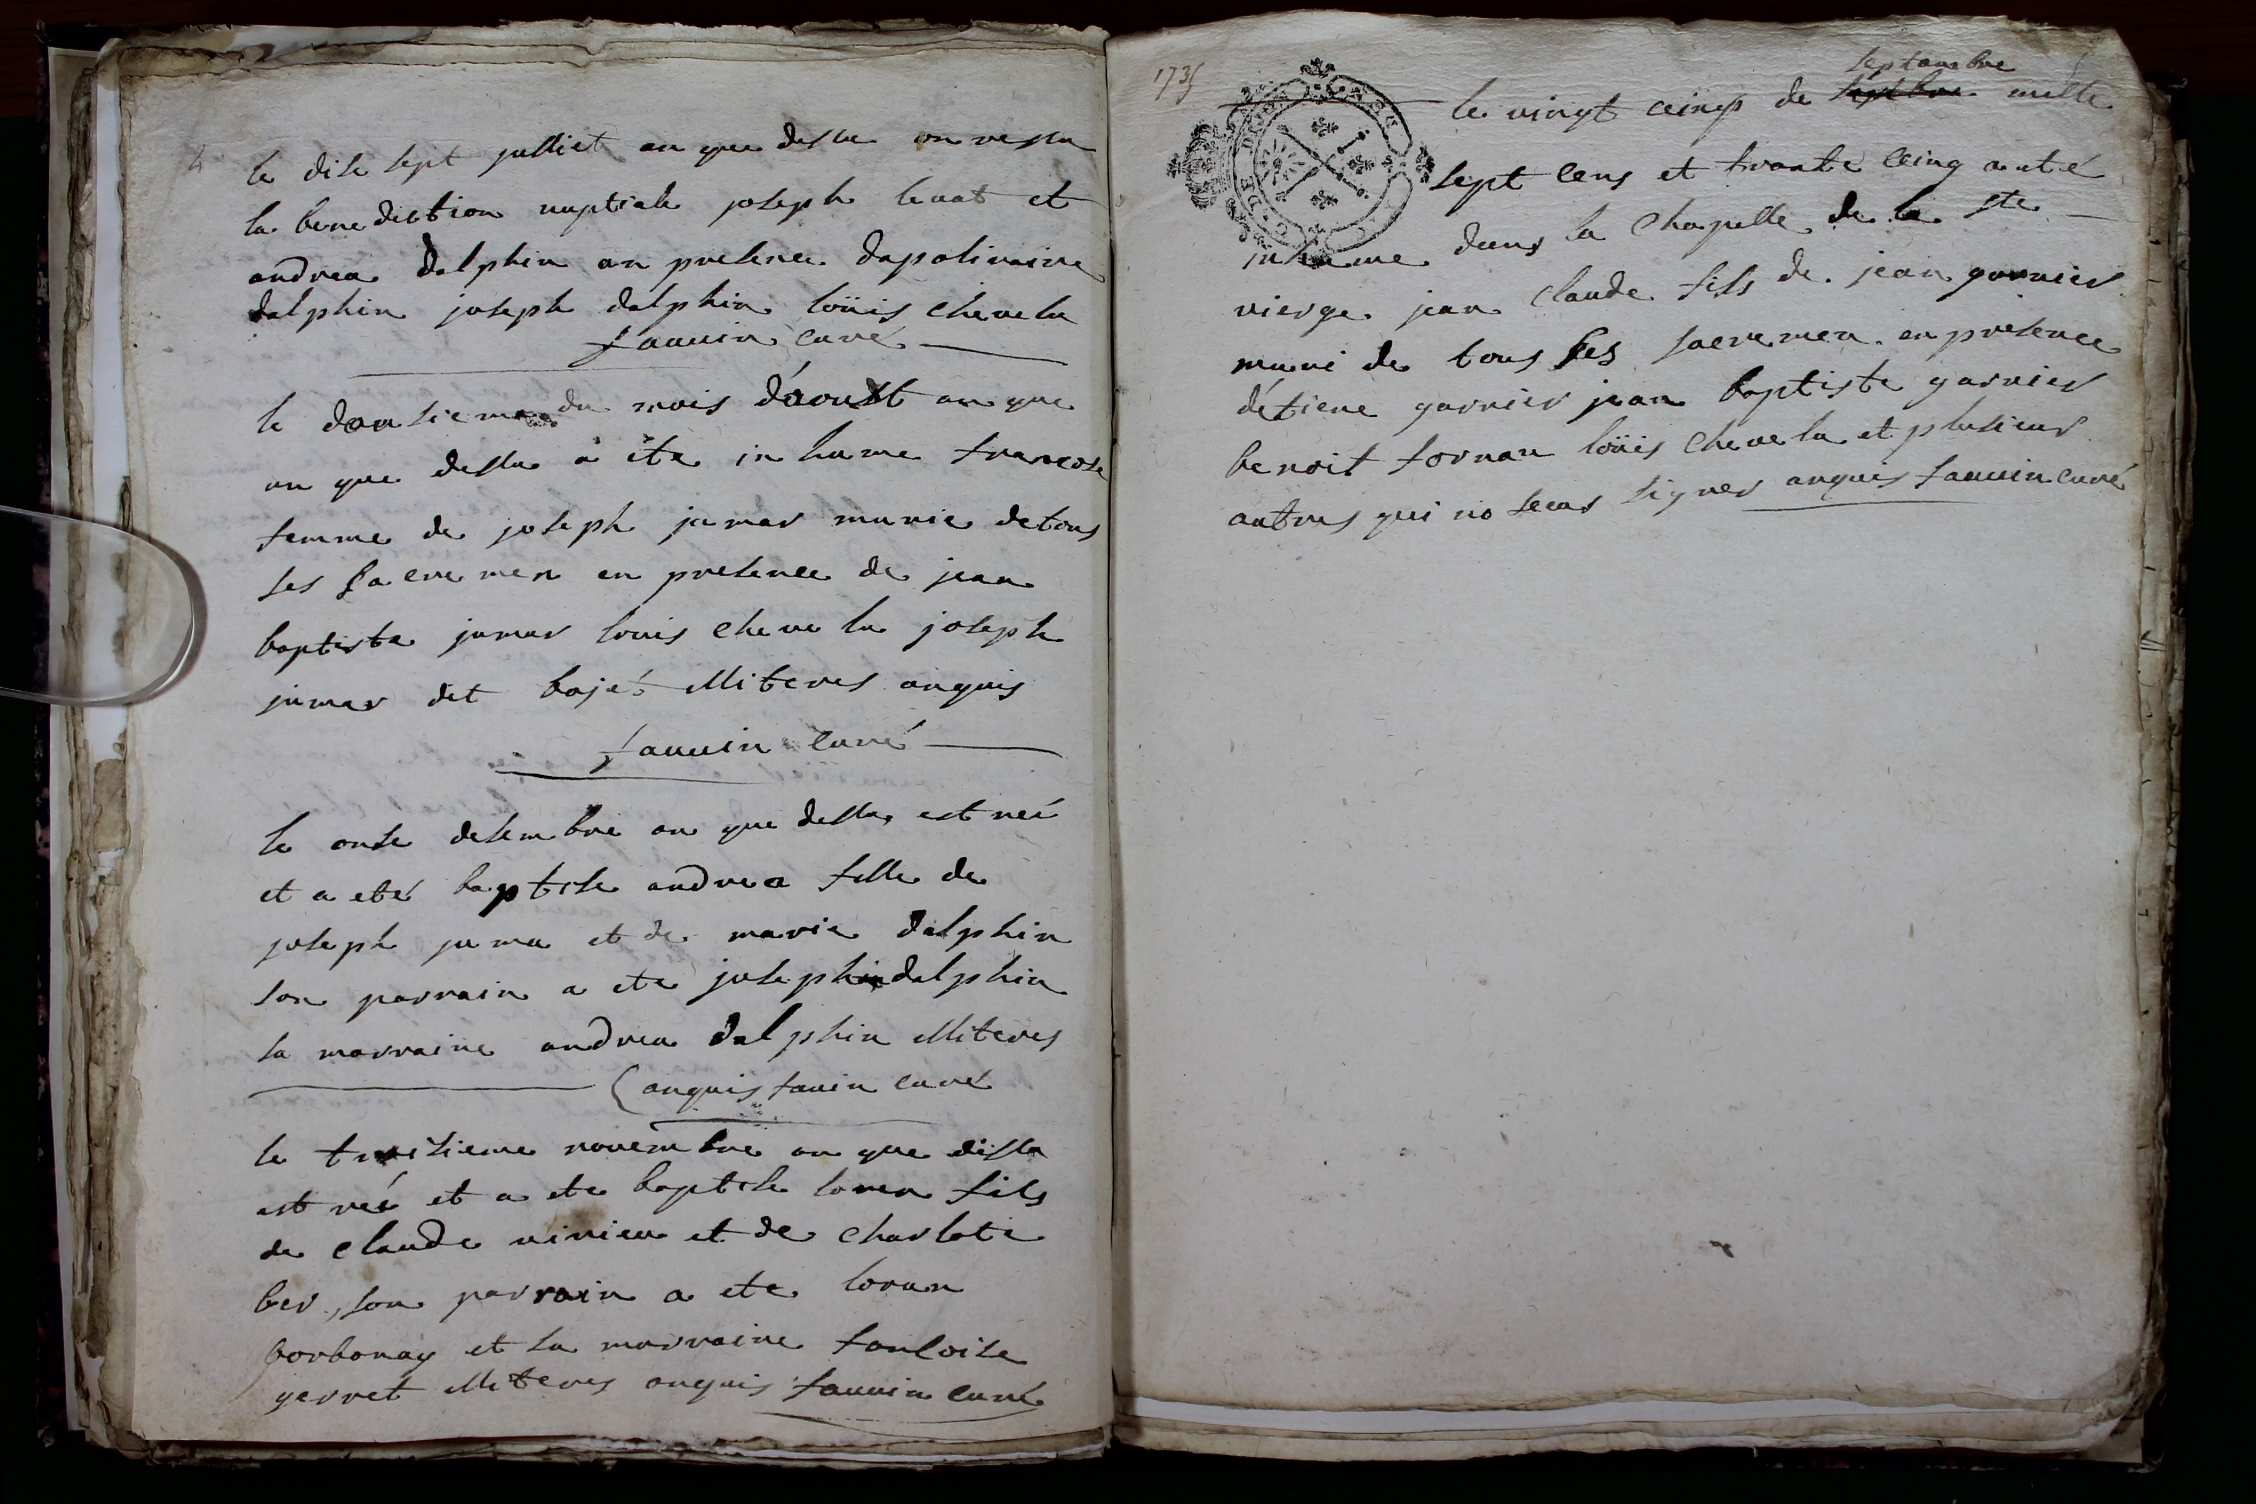 4
le dise sept julliet an que dessu on ressu
la benediction nuptiale joseph levat et
andrea dalphin an presence dapolinaire
dalphin joseph dalphin loüis chevelu
fauvin curé
le dousieme du mois d'aoust an que
an que dessu a ete inhume francose
femme de joseph jumar munie de tous
ses sacremen en presence de jean
baptiste jumar louis chevelu joseph
jumar dit bajét illiteres anquis
fauvin curé
le onse desembre an que dessu est neé
et a eté baptise andrea fille de
joseph juma et de marie dalphin
son parrain a ete joseph dalphin
sa marraine andrea dalphin illiteres
anquis fauin curé
le troisieme novembre an que dissu
est neé et a ete baptise loren fils
de claude vivien et de charlote
ber, son parrain a ete loran
borbonay et sa marraine fancoise
gerret illiteres anquis fauvin curé
1735
septambre
le vingt ceinq de septbre mille
sept cens et trante ceinq a eté
inhume dans la chapelle de la ste
vierge jean claude fils de jean garnier
muni de tous ses sacremen en presence
détiene garnier jean baptiste garnier
benoit fornan loüis chevelu et plusieur
autres qui no seeu signer anquis fauvin curé